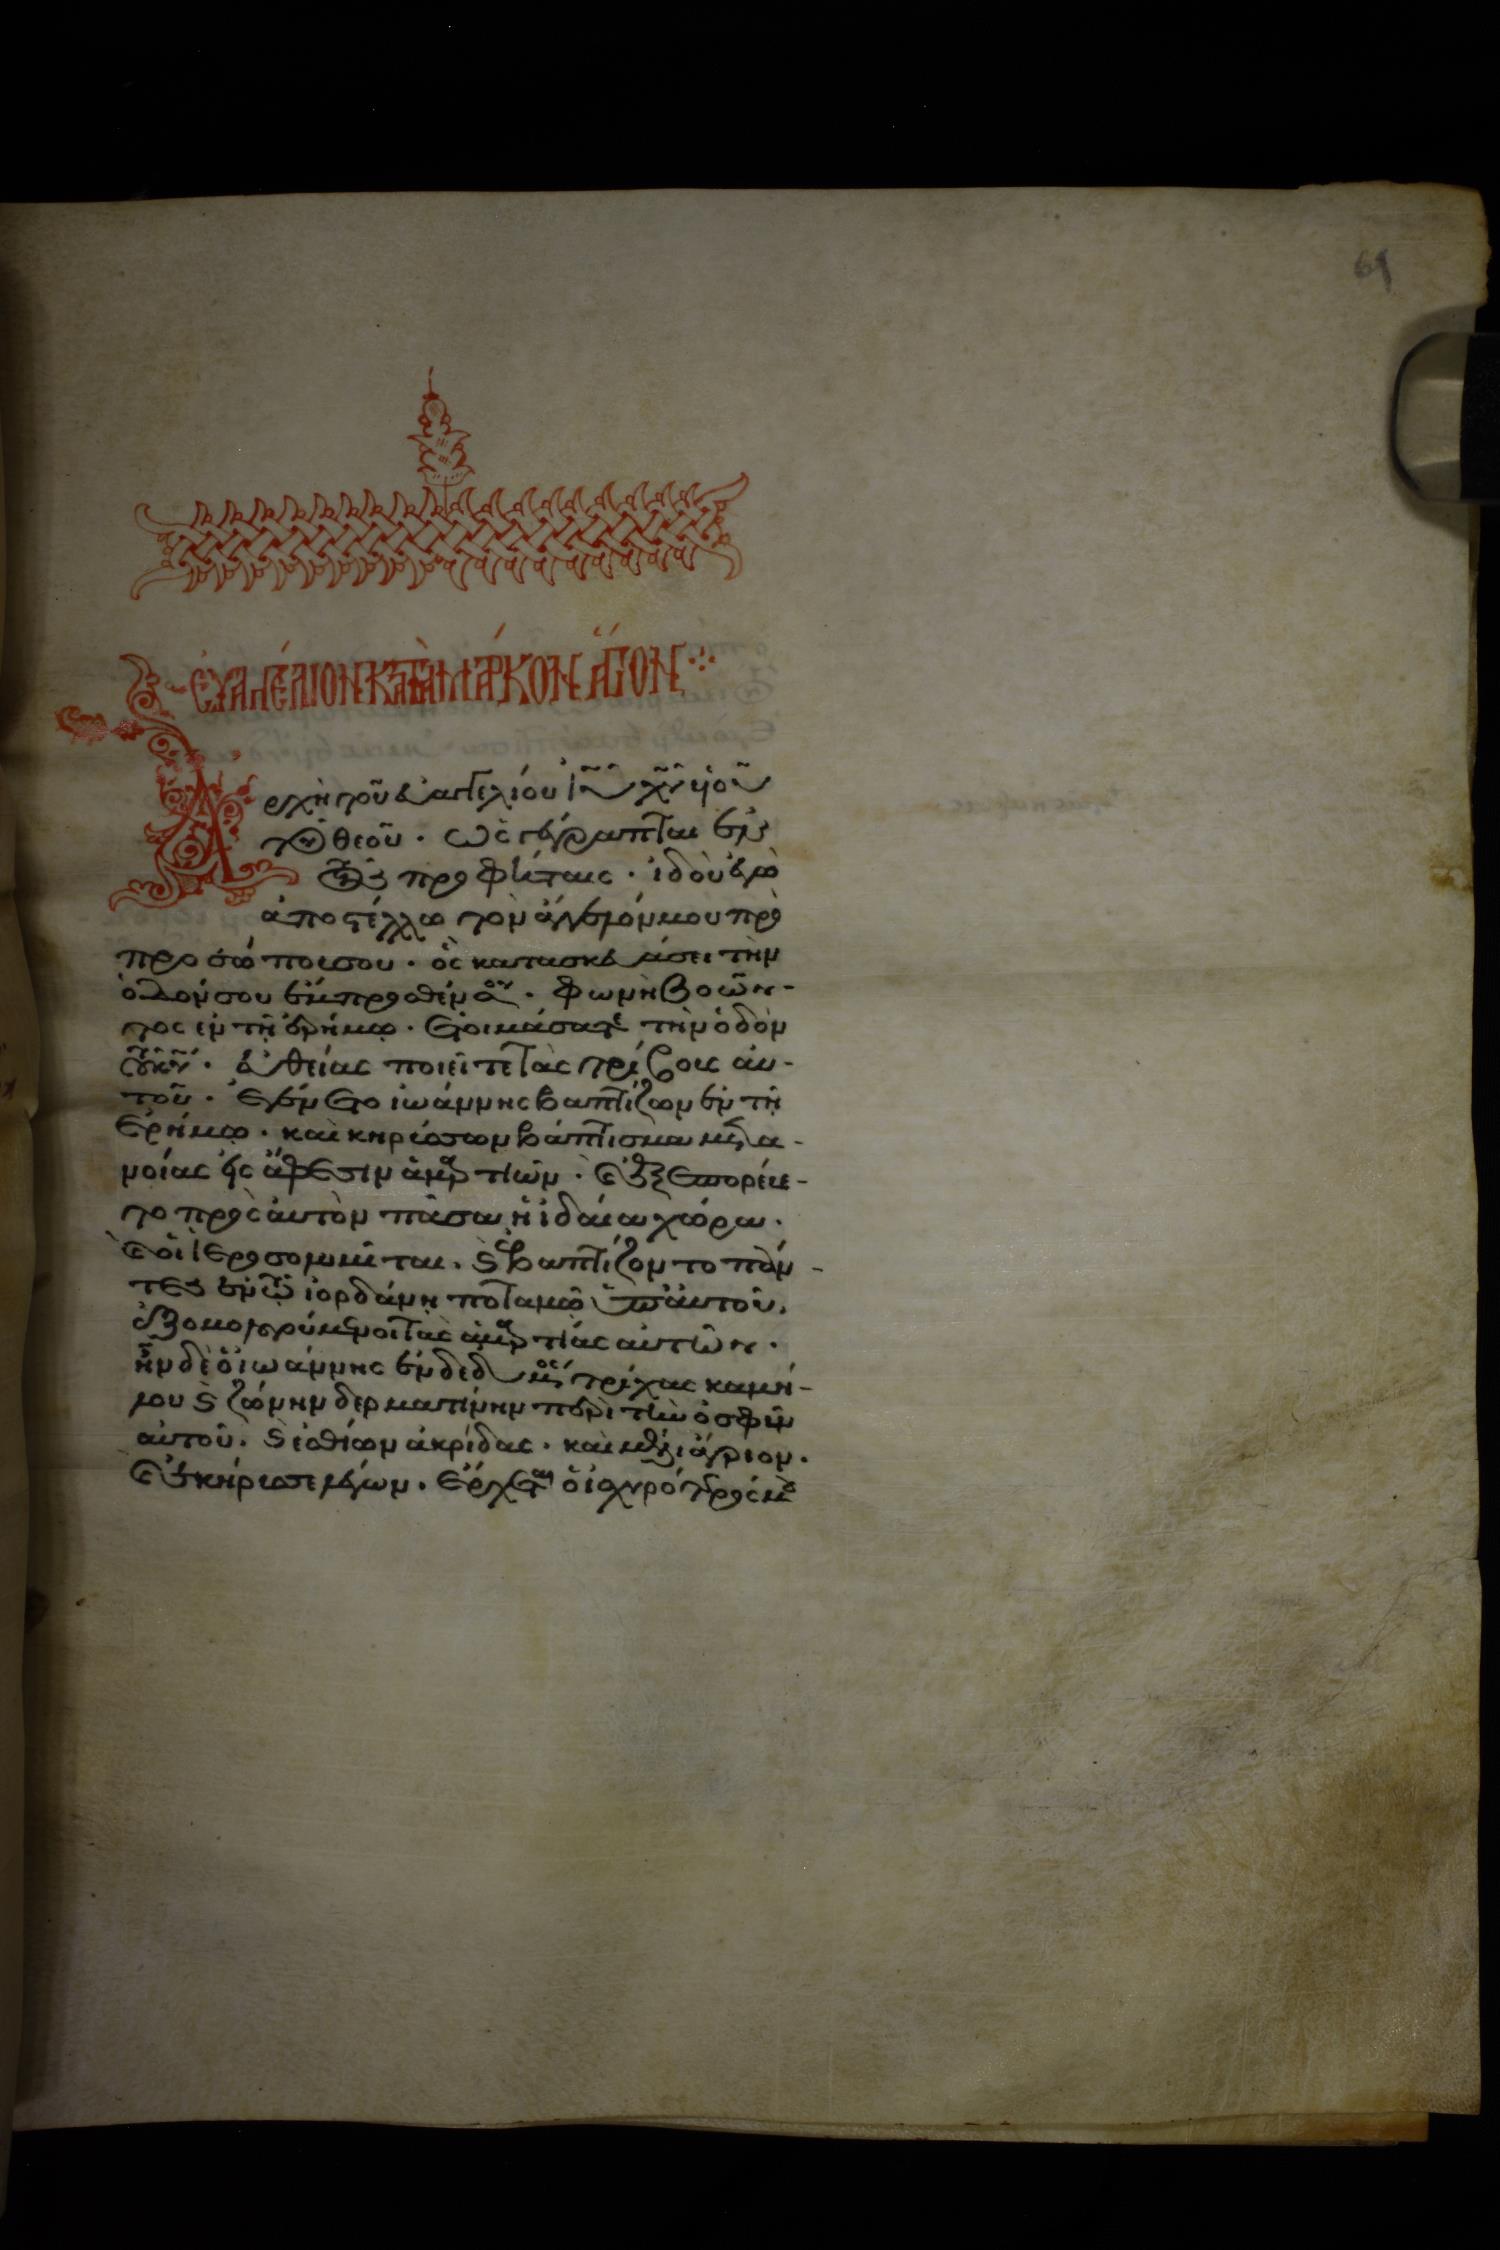 61
ΕὐΑΓΓΈΛΙΟΝ ΚΑΤᾺ ΜΆΡΚΟΝ ἍΓΙΟΝ
Αρχὴ τοῦ ἐυαγγελίου ἰῦ χῦ ὑιοῦ
τοῦ θεοῦ · ὡς γέγραπται ἐν
τοῖς προφήταις · ἰδοὺ ἐγὼ
ἀποστέλλω τὸν ἄγγελόν μου πρὸ
προσώπου σου · ὃς κατασκευάσει τὴν
ὁδόν σου ἔμπροσθέν σου · φωνὴ βοῶν-
τος ἐν τῆ ἐρήμω · ἑτοιμάσατε τὴν ὁδὸν
κῦ · ἐυθείας ποιεῖτε τὰς τρίβους ἀυ-
τοῦ · ἐγένετο ἰωάννης βαπτίζων ἐν τῆ
ἐρήμω · καὶ κηρύσσων βάπτισμα μετα-
νοίας εἰς ἄφεσιν ἁμαρτιῶν · καὶ ἐξεπορεύε-
το πρὸς ἀυτὸν πᾶσα ἡ ἰδαία χώρα ·
καὶ οἱ ἱεροσολυμῖται · καὶ ἐβαπτίζοντο πάν-
τες ἐν τῶ ἰορδάνη ποταμῶ ὑπ' ἀυτοῦ ·
ἐξομολογούμενοι τὰς ἁμαρτίας αὐτῶν ·
ἦν δὲ ὁ ἰωάννης ἐνδεδυμένος τρίχας καμή-
λου καὶ ζώνην δερματίνην περὶ τὴν ὀσφὺν
αὐτοῦ · καὶ ἐσθίων ἀκρίδας · καὶ μέλι ἄγριον ·
καὶ ἐκήρυσσε λέγων · ἔρχεται ὁ ἰσχυρότερός μου